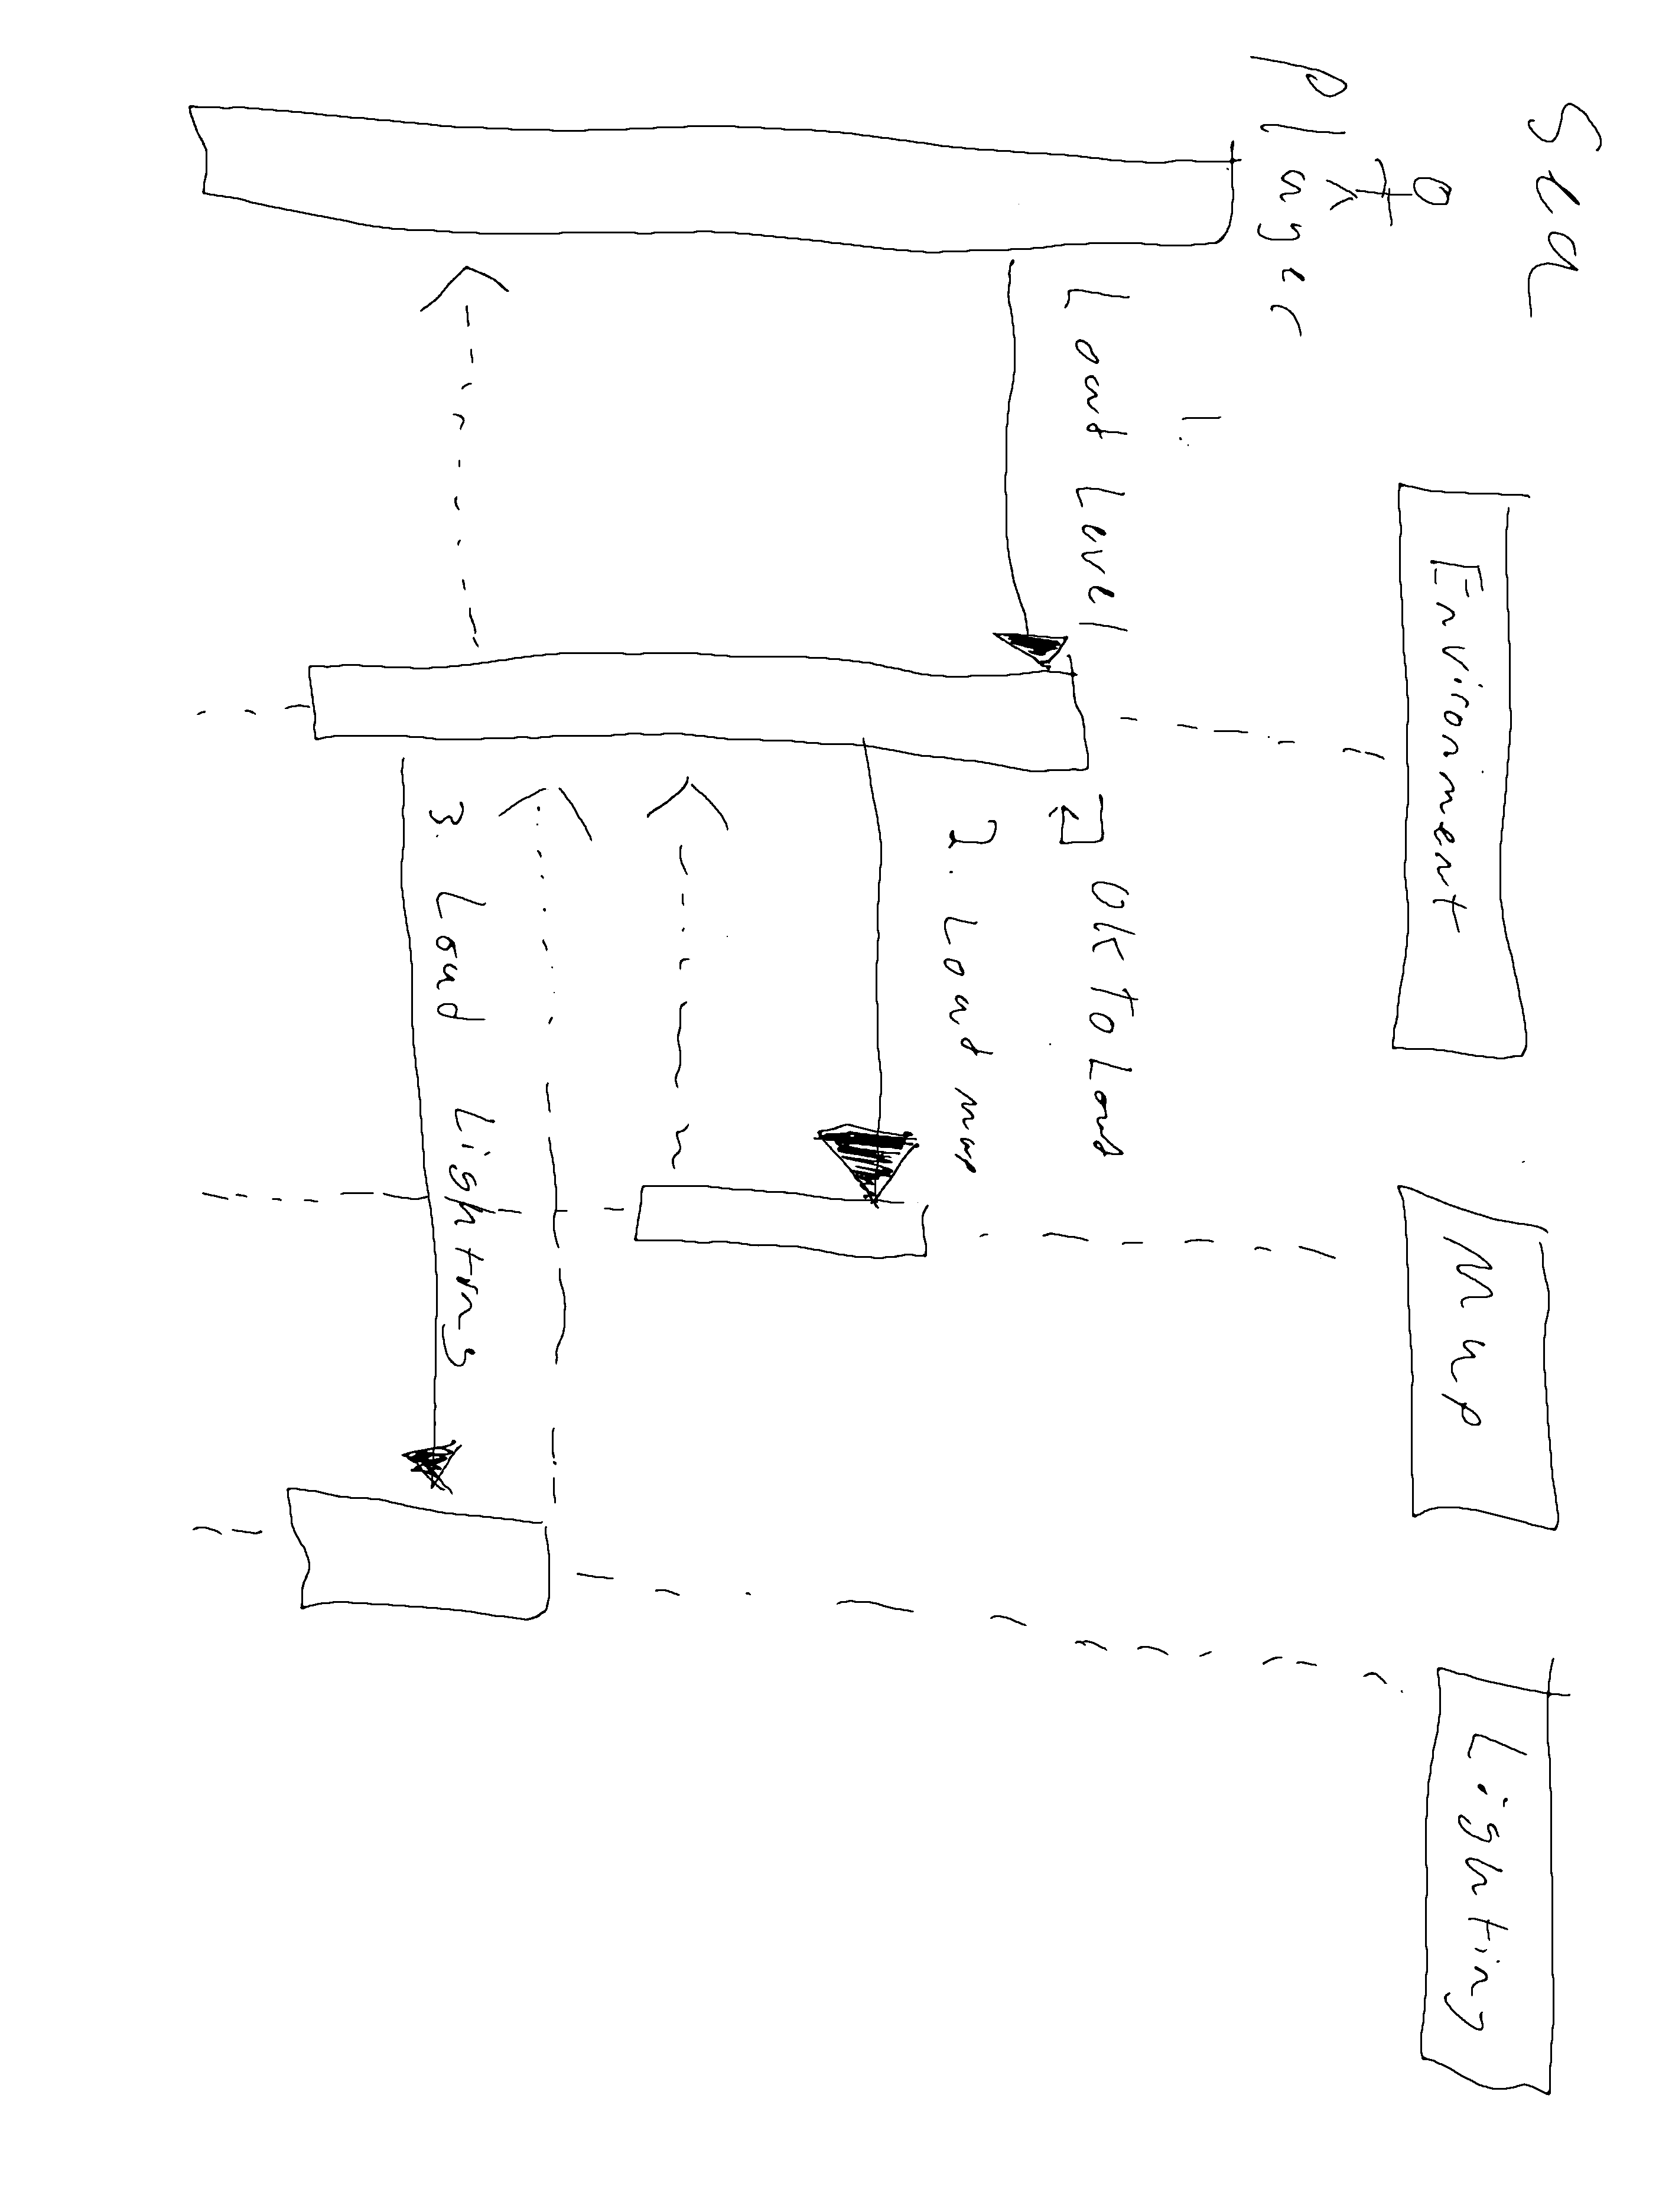 Seq
Player
Environment
Map
Lighting
1.
Load Level
OK to Load
2. Load map
3. Load Lighting